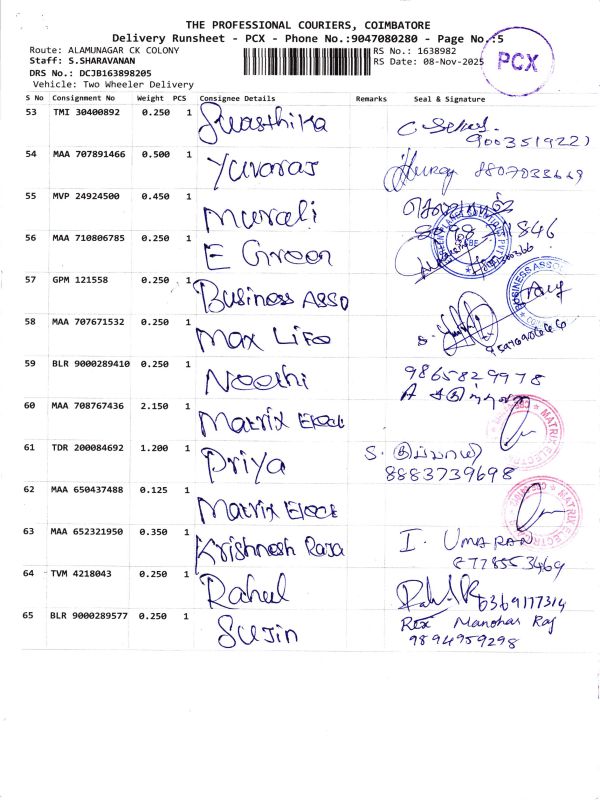 THE PROFESSIONAL COURIERS, COIMBATORE
Delivery Runsheet - PCX - Phone No.:9047080280 - Page No.:5
Route: ALAMUNAGAR CK COLONY RS No.: 1638982
Staff: S.SHARAVANAN RS Date: 08-Nov-2025
PCX
DRS No.: DCJB163898205
Vehicle: Two Wheeler Delivery
S No Consignment No Weight PCS Consignee Details Remarks Seal & Signature
53 TMI 30400892 0.250 1 Swasthika
54 MAA 707891466 0.500 1 Yuvaraj
55 MVP 24924500 0.450 1 Murali
56 MAA 710806785 0.250 1 E Green
57 GPM 121558 0.250 1 Business Asso
58 MAA 707671532 0.250 1 Max Life
59 BLR 9000289410 0.250 1 Neethi 9865829978
60 MAA 708767436 2.150 1 Matrix Elect
61 TDR 200084692 1.200 1 Priya S.
8883739698
62 MAA 650437488 0.125 1 Matrix Elect
63 MAA 652321950 0.350 1 Krishnesh Raja I. UMARAN
64 TVM 4218043 0.250 1 Rahul
65 BLR 9000289577 0.250 1 Sujin Rex Manohar Raj
9894959298